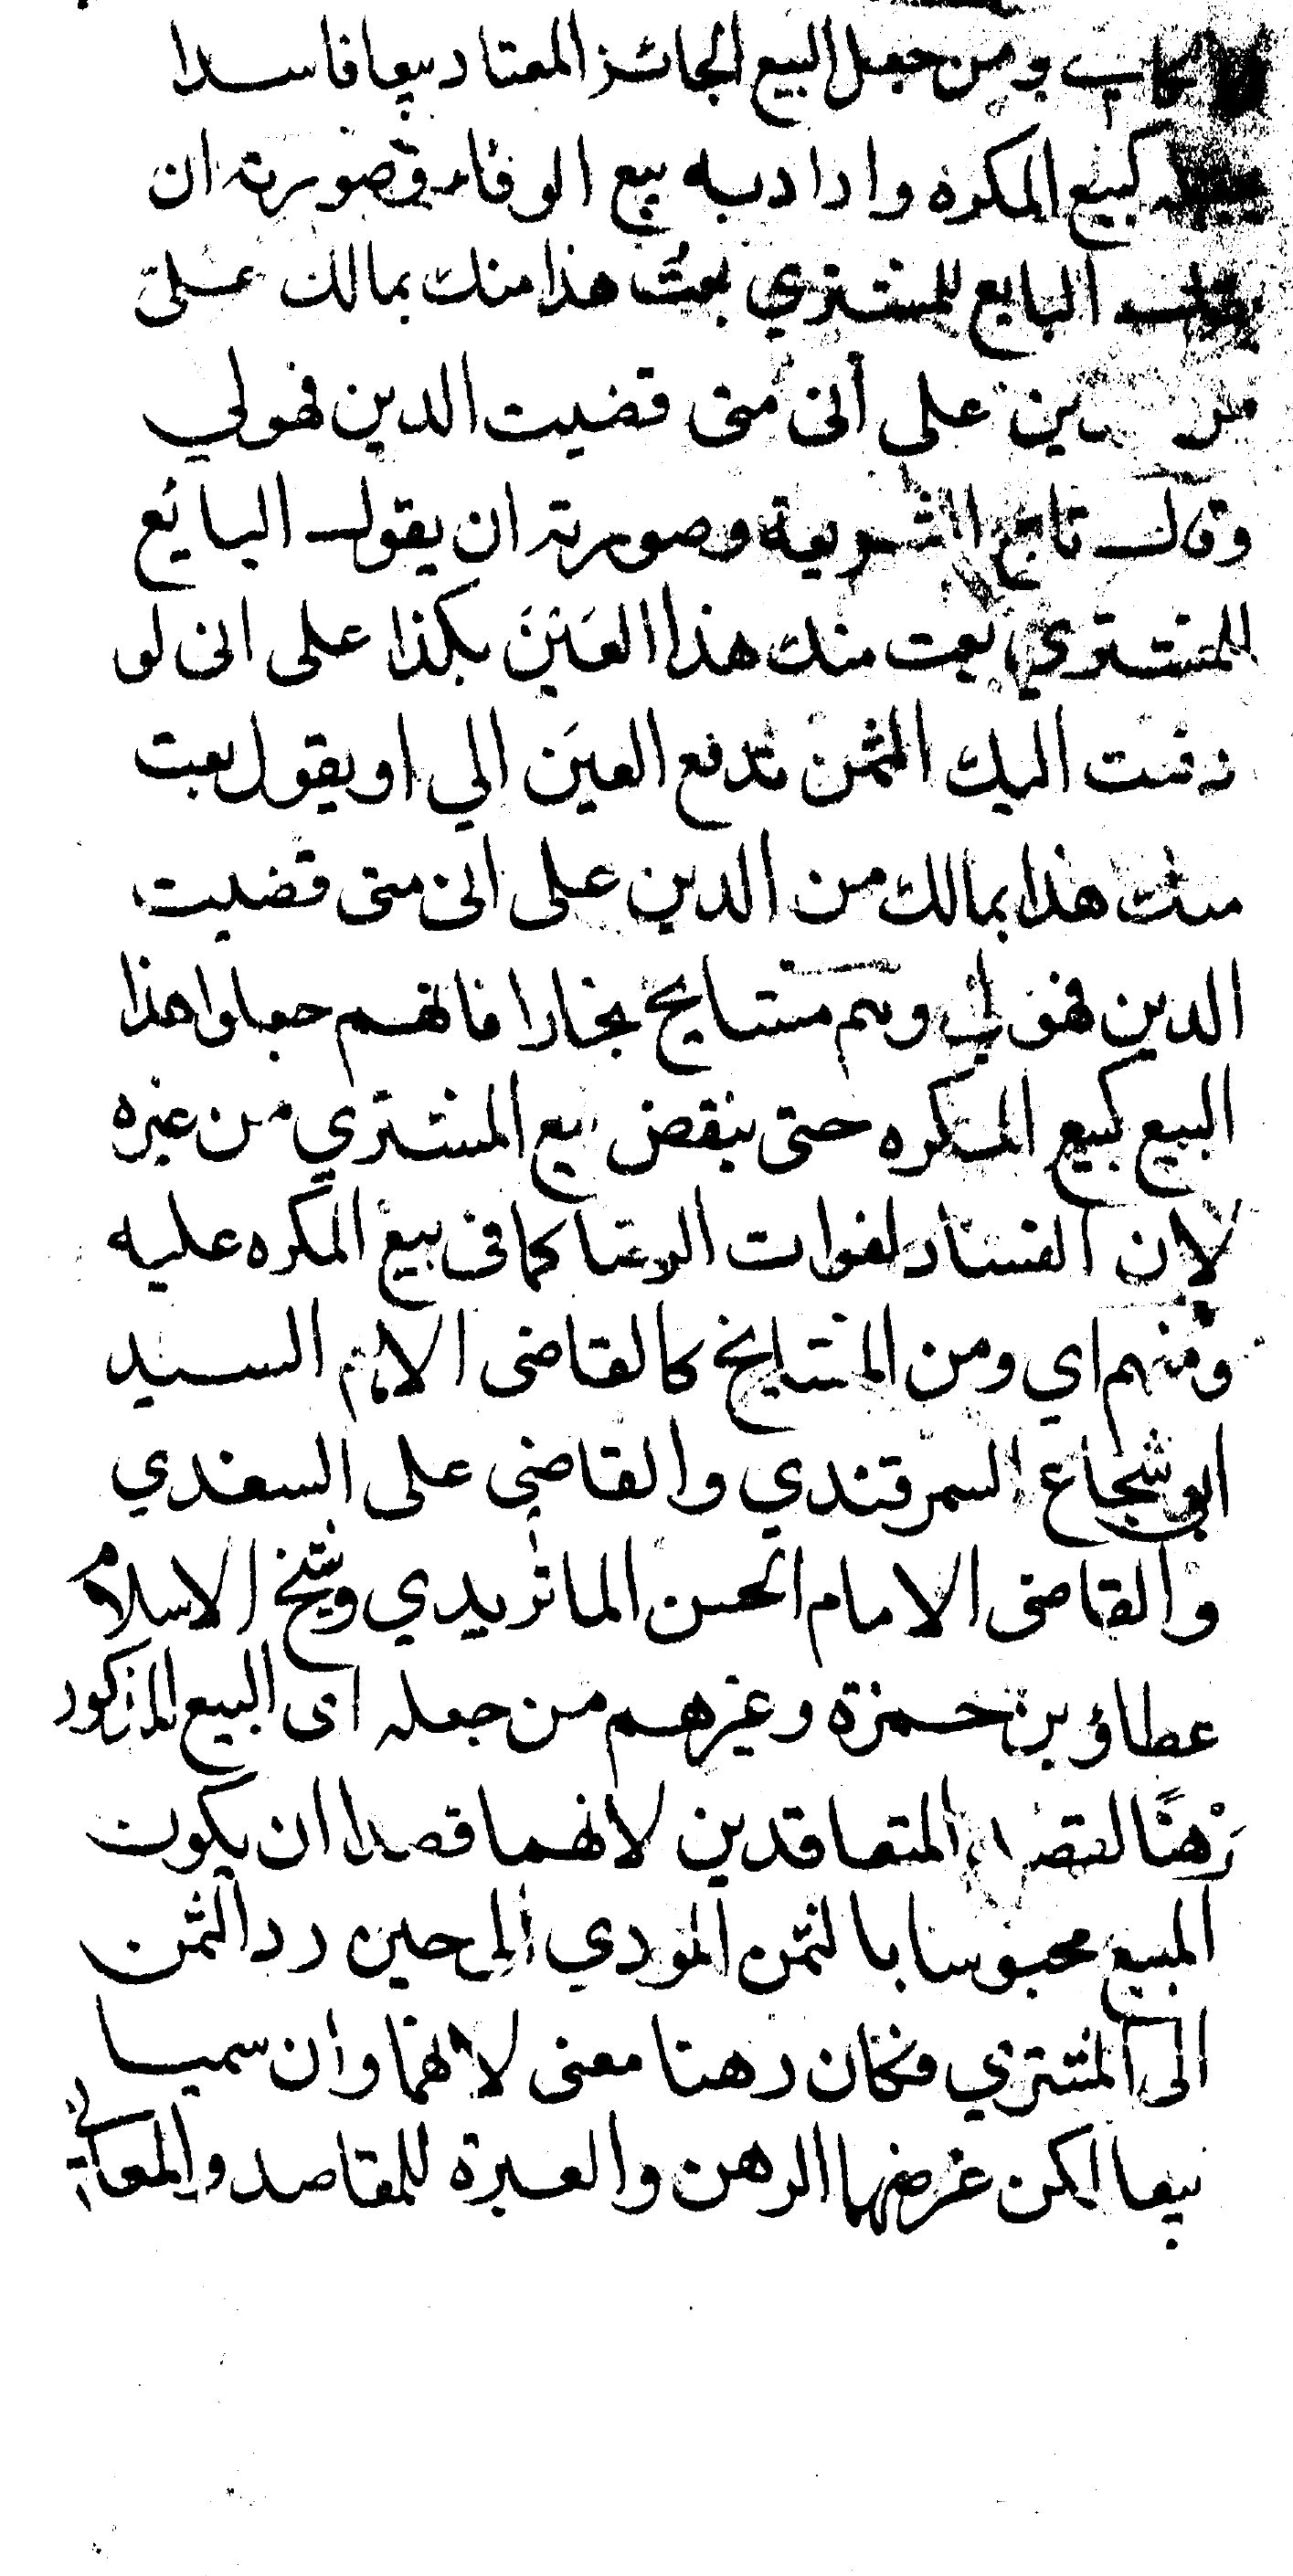 ومن جعل البيع الجائز المعتاد بيعا فاسدا
كبيع المكره وارادبه بيع الوفاء وصورته ان
البايع للمشتري بعت هذا منك بمالك علي
من دين على أنى متى قضيت الدين فهولي
وقال تاج الشريعة وصورته ان يقول البائع
للمشتري بعت منك هذا العَيْنَ بكذا على انى لو
دفعت اليك الثمن تدفع العين الي او يقول بعت
منك هذا بمالك من الدين على انى متى قضيت
الدين فهولي وهم مشايخ بخارا فانهم جعلوا هذا
البيع كبيع المكره حتى ينقض بيع المشتري من غيره
لان الفساد لفوات الرضا كما في بيع المكره عليه
ومنهم اي ومن المشايخ كالقاضى الامام السيد
ابى شجاع السمرقندي والقاضي على السغدي
والقاضى الامام الحسن الماتريدي وشيخ الاسلام
عطاؤ بن حمزة وغيرهم من جعله اى البيع المذكور
رَهْنًا لقصد المتعاقدين لانهما قصدا ان يكون
المبيع محبوسا بالثمن المؤدي الى حين رد الثمن
الى المشتري فكان رهنا معنى لانهما وان سميا
بيعا لكن غرضهما الرهن والعبرة للمقاصد والمعاني